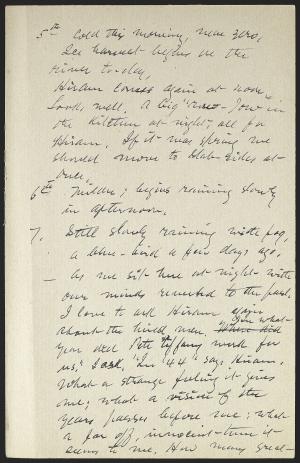 5th Cold this morning, near zero,
Ice harvest begins on the
river to-day,
Hiram comes again at noon,
looks well. A big "row-jow" in
the kitchen at night; all for
Hiram. If it was spring we
should move to Slab-sides at
once.
6th Milder; begins raining slowly
in afternoon.
7. Still slowly raining with fog,
a blue-bird a few days ago.
— As we sit here at night with
our minds reverted to the past,
I love to ask Hiram again
about the hired men. "In what
year did Pete Tiffany work for
us," I ask. "In '44" says Hiram.
What a strange feeling it gives
me; what a vision of the
years passes before me; what
a far off, innocent time it
seems to me, How many great-